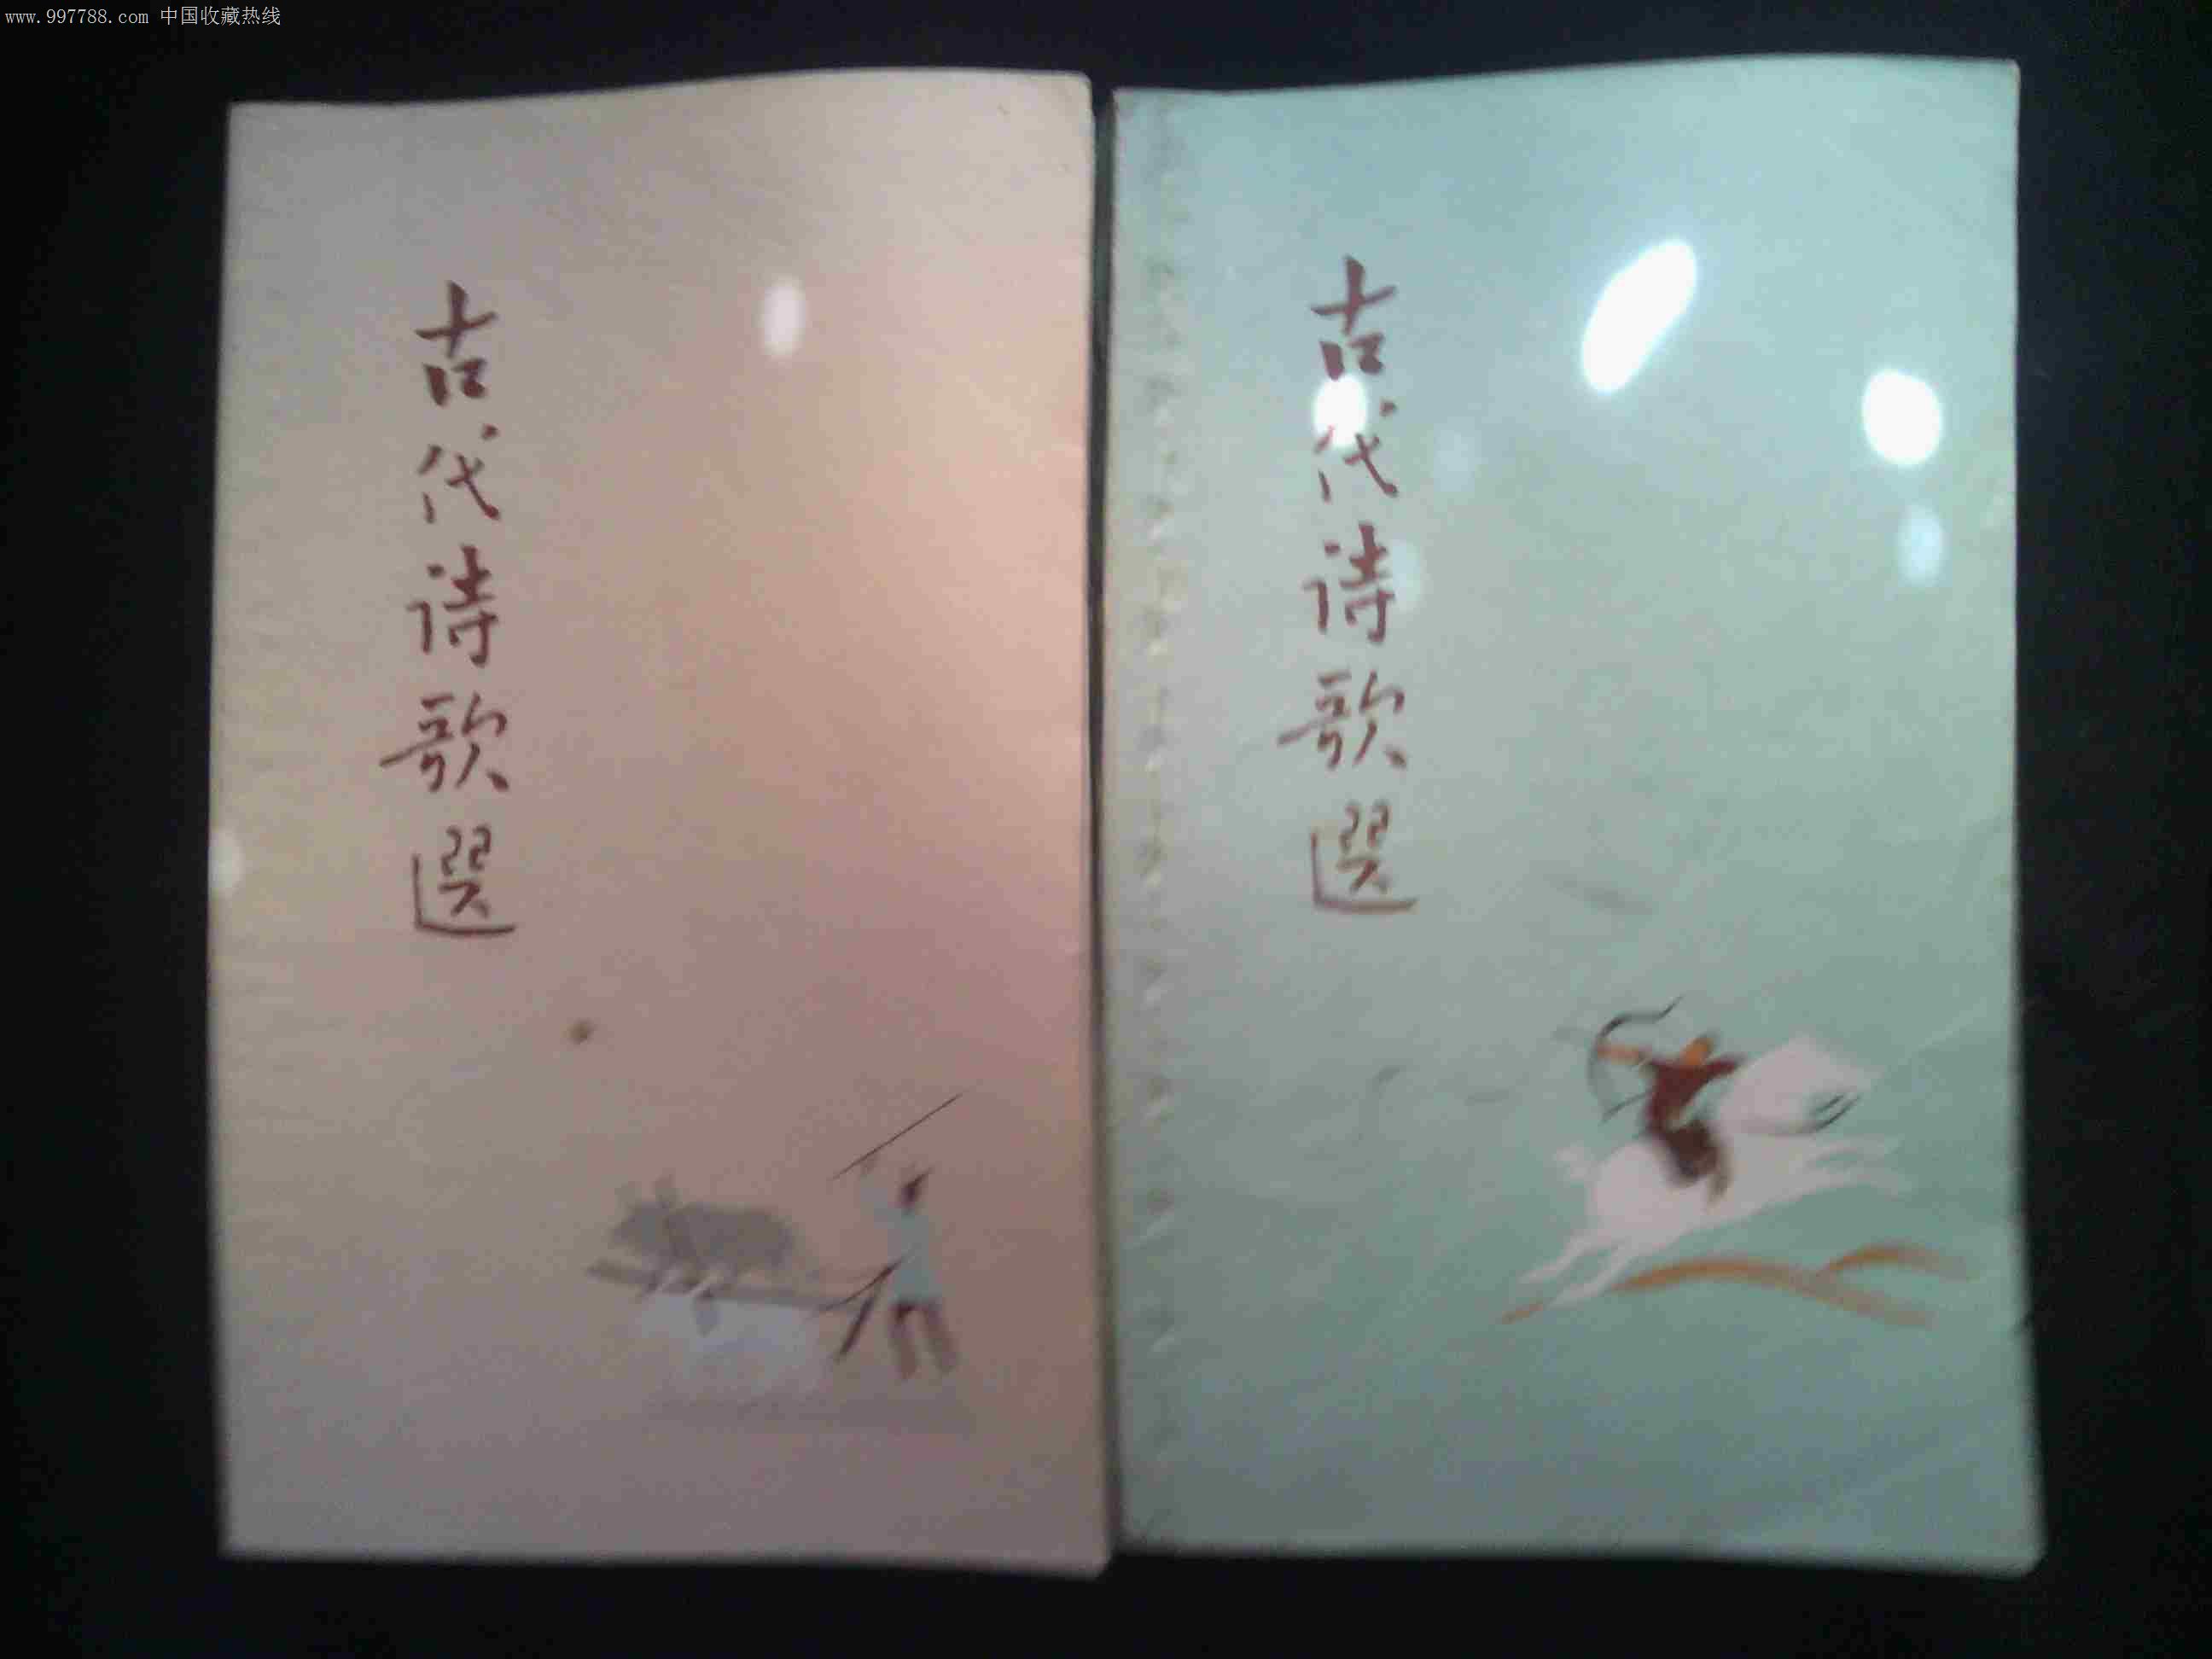 www.997788.com 中国收藏热线
古代诗歌選
古代诗歌選